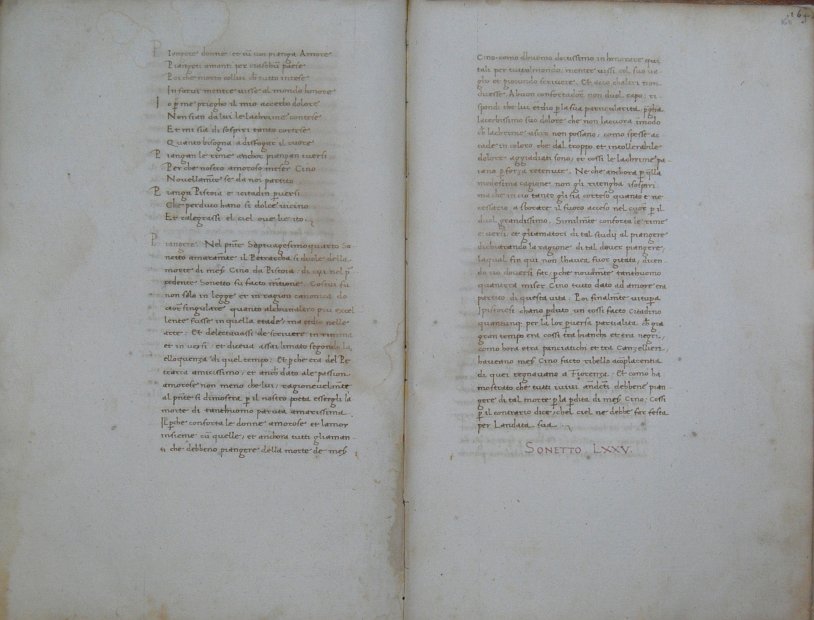 Piangete donne et cũ uoi pianga Amore
Piangeti amanti per ciaschũ paese
Poi che morto collui
In farui mentre uisse al mondo honore
Io p me priegho il mio acerbo dolore
Non sian da lui le lachrime contese
Et mi sia di sospiri tanto cortese
Quanto bisogna a disfogar il cuore
Piangan le rime anchor piangan i uersi
Per che nostro amoroso meser Cino
Nouellamte se da noi partito
Pianga Pistoia e i citadin puersi
Che perduto hano si dolce uicino
Et ralegrassi el ciel oue lie ito.
Piangete. Nel pñte Septuagesimo quarto So
netto amaramte il Petrarcha si duole della
morte di mes Cino da Pistoia, di cui nel p
cedente Sonetto fu facto mtione. Costui fu
non sola in legge et in ragion canonica do
ctore singulare quanto alchunaltro piu excel
lente fusse in quella etade, ma etdio nelle
arte. Et delectauassi de scriuere in rimma
et in uersi, et diceua assai limato segondo la
elloquenza di quel tempo. Et pche era del Pe
trarca amicissimo, et ancõ dato ale passion
amorose non meno che lui, ragioneuelmte
al pñte si dimostra p il nostro poeta essergli la
morte di tanthuomo partita amarissima.
Il pche conforta le donne amorose et lamor
insieme cũ quelle, et anchora tutti gliaman
ti che debbeno piangere della morte de mes
Cino como dhuomo dectissimo in honorare qui
tali per tutto mondo, mentre uissi col suo ua
go et giocundo scriuere. Et acio chaltri non
dicesse. A buon confortador non duol capo, ri
spondi che lui etdio p la sua particularita, pgha
lacerbissimo suo dolore che non lauora in modo
di lachrime uscir non possano, como spesse ac
cade in coloro che dal troppo et intollerabile
dolore aggriadiati sono, et cossi le lachrime pa
iana p forza retenute. Ne che anchora p quella
modesima cagione, non gli ritengha i sospiri
ma che in cio tanto gli sia corteso quanto e ne
cessario a sborare il suoco acceso nel cuor p il
duol grandissimo. Similmte conforta le rime
e uersi, et gliamatori di tal studij al piangere
dichiarando la ragione di tal douer piangere,
laqual fin qui non lhauea fuor gitata, dicen
do cio douersi far, pche nouamte tanthuomo
quanto era miser Cino tuto dato ad amore era
partito di questa uita. Poi finalmte uitupa
i puersi chano pduto un cossi facto Citadino
quantunq per la lor puersa partialita, di gia
gran tempo era cossi tra bianchi et tra negri,
como hora e tra panciatichi et tra Can, ellieri,
haueano mes Cino facto ribello a complacentia
di quei regnauano a Fiorenza. Et como ha
mostrato che tutti i uiui anchi debbene pian
gere di tal morte p la pdita di mes Cino, Cossi
p il contrario dice, chel ciel ne debbe far festa
per Landata sua.
SONETTO LXXV.